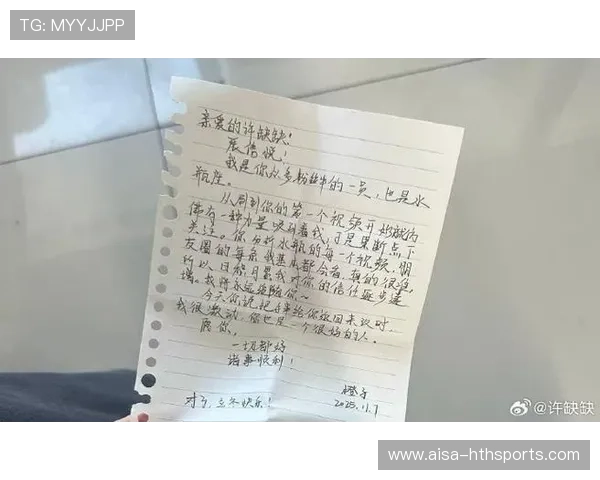 TG: MYYJJPP
亲爱的许缺缺!
展信悦!
我是你众多粉丝中的一员,也是水
瓶座。
从刷到你的第一个视频开始就仿
佛有一种力量吸引着我,于是果断点下
关注。你分析水瓶的每一个视频,朋
友圈的每条我基本都会看,真的很准,
所以日积月累我对你的信任逐步递
增。我将永远追随你~
今天你说把手串给你返回来议时,
我很激动,你也是一个很好的人。
愿你。
一切都好
诸事顺利!
橙子
2025.11.7
对了,立冬快乐!
@许缺缺
www.aisa-hthsports.com